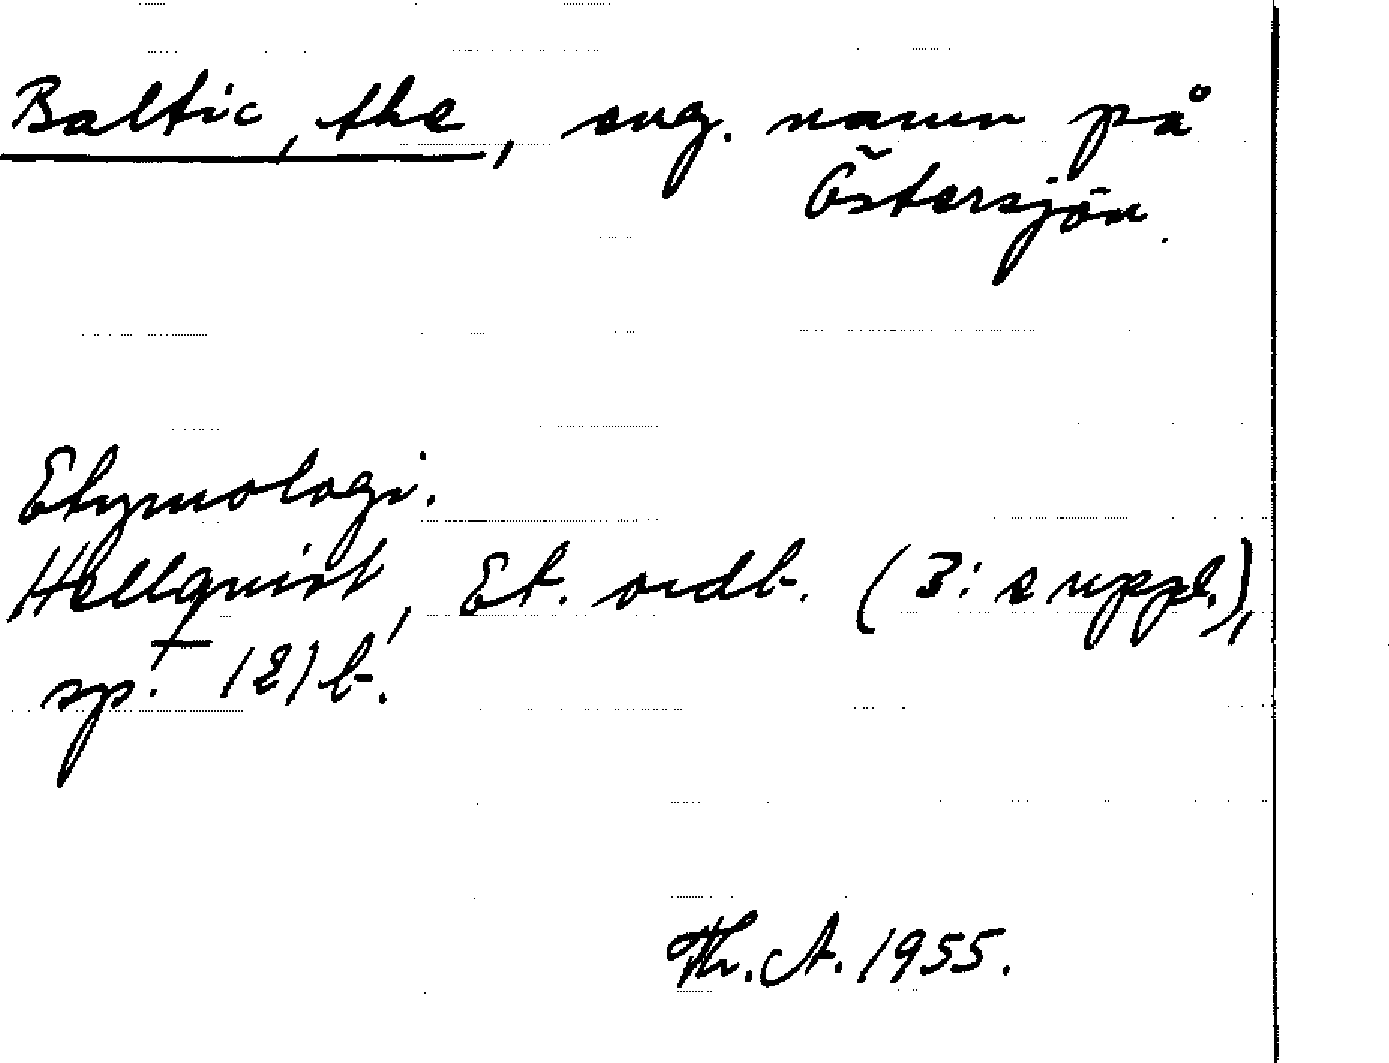 Baltic, the, eng. namn på
Östersjön.
Etymologi.
Hellquist, Et. ordb. (3: suppl.),
sp. 121 b.
Th. A. 1955.